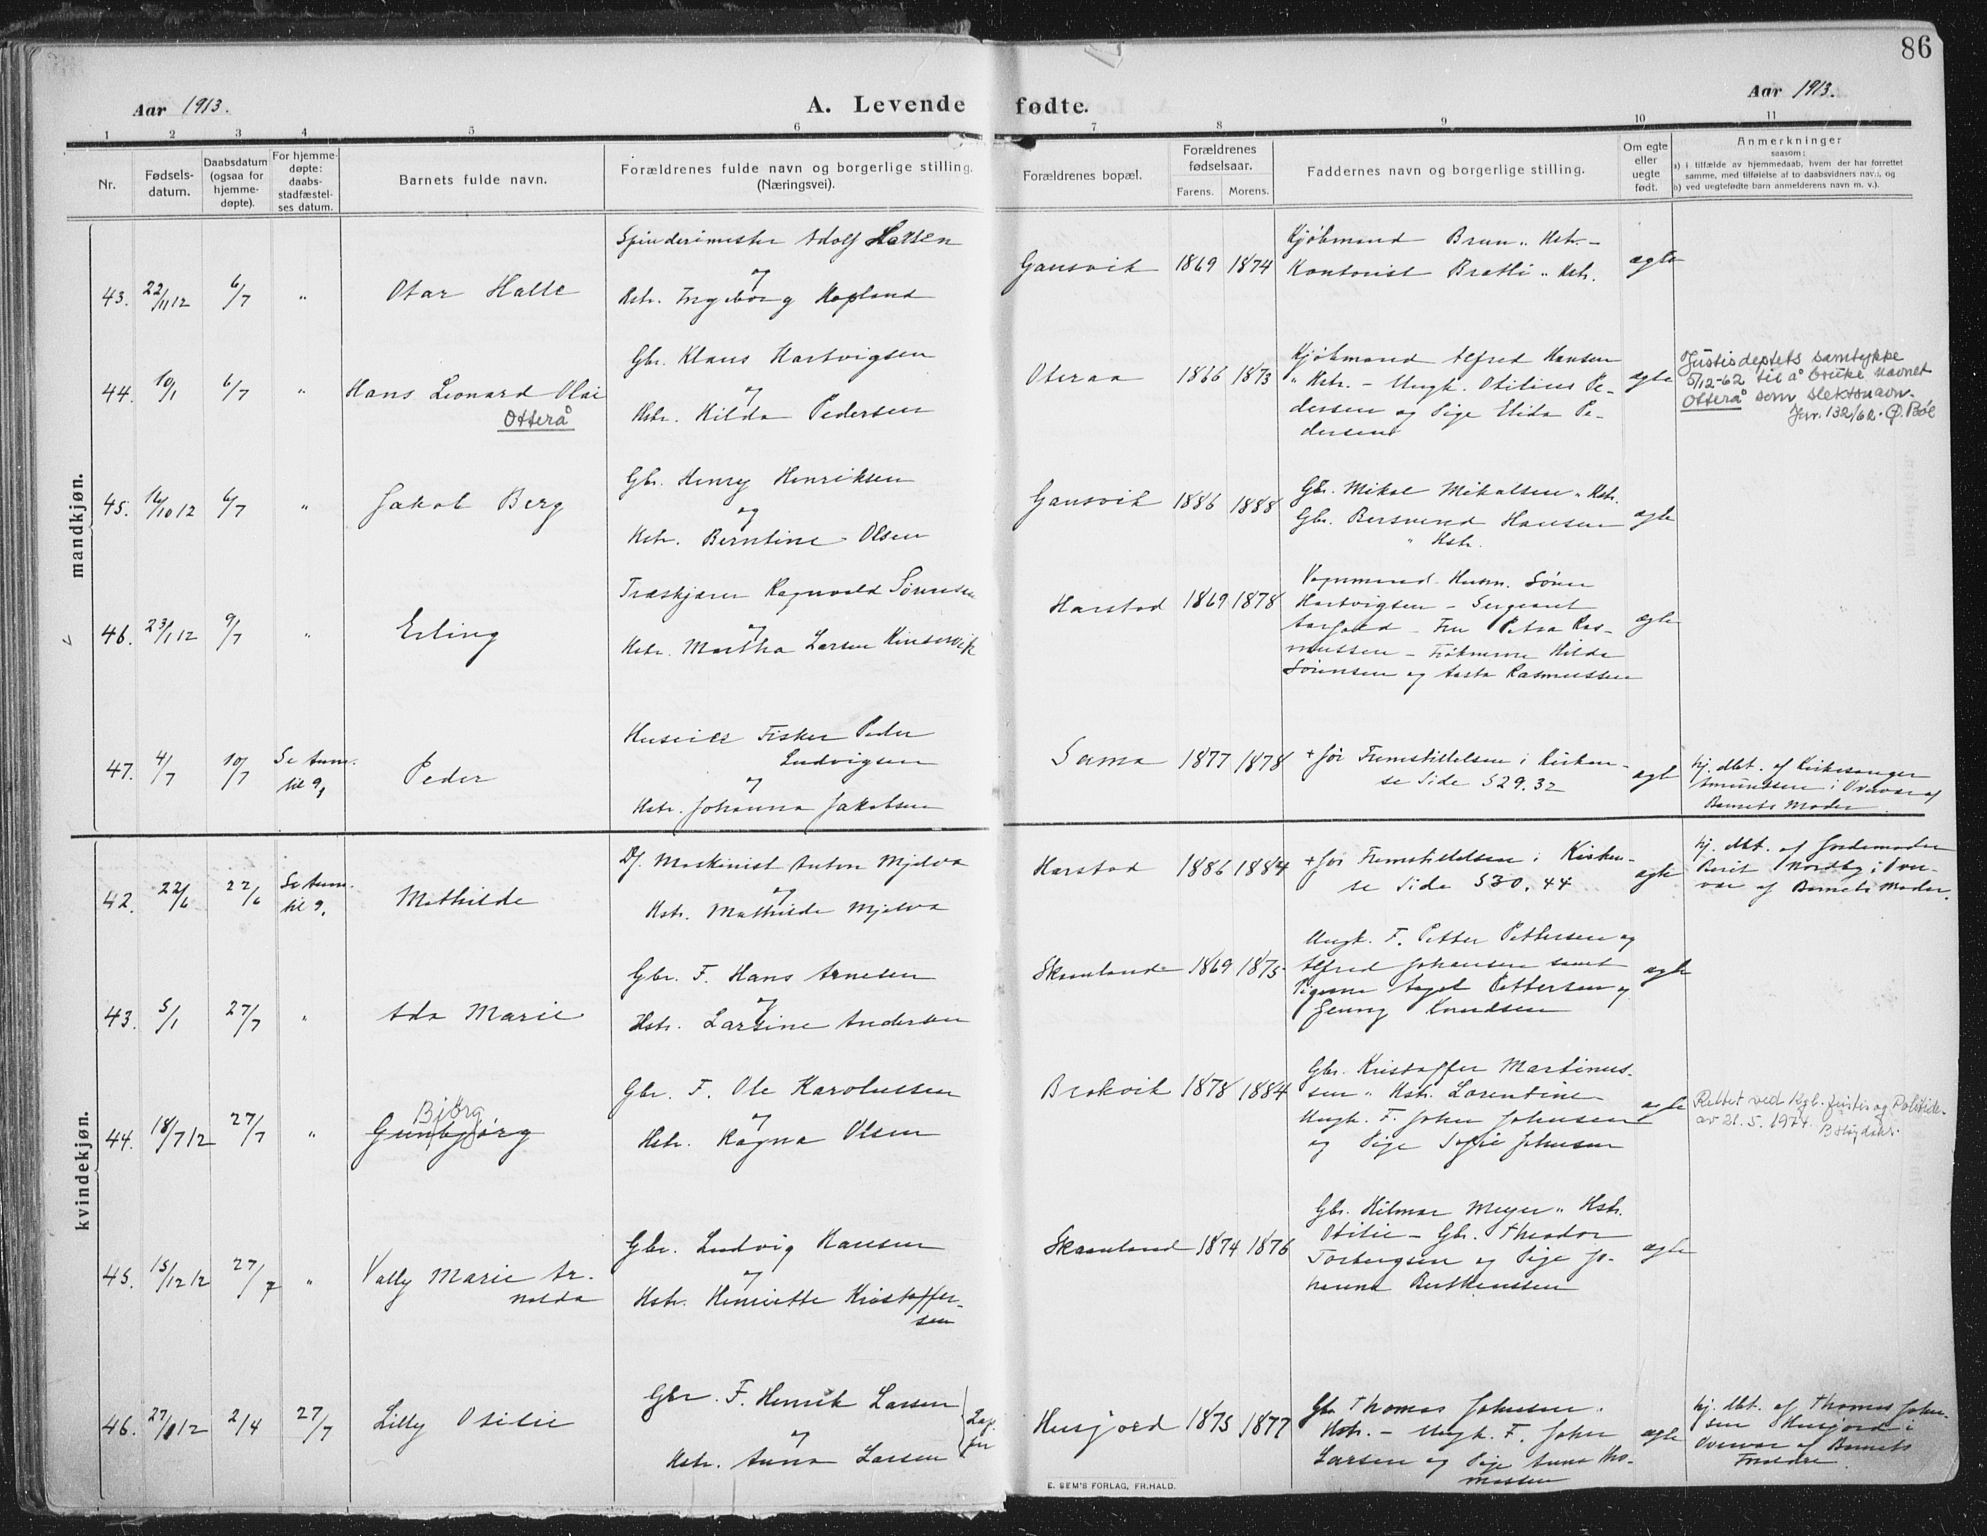 86
Aar 1913.
A. Levende fødte.
Aar 1913.
1 2 3 4 5 6 7 8 9 10 11
Nr.
Fødsels-
datum.
Daabsdatum
(ogsaa for
hjemme-
døpte).
For hjemme-
døpte:
daabs-
stadfæstel-
ses datum.
Barnets fulde navn.
Forældrenes fulde navn og borgerlige stilling.
(Næringsvei).
Forældrenes bopæl.
Forældrenes
fødselsaar.
Farens. Morens.
Faddernes navn og borgerlige stilling.
Om egte
eller
uegte
født.
Anmerkninger
saasom:
a) i tilfælde av hjemmedaab, hvem der har forrettet
samme, med tilføielse af to daabsvidners navn, og
b) ved uegtefødte barn anmelderens navn m. v.).
mandkjøn.
43. 22/11 12 6/7 " Otar Halle
Spinderimester Adolf
og
Hstr. Ingeborg Hopland
Gansvik 1869 1874
Kjøbmand Brun " Hstr. –
Kontorist Bratli " Hstr.
ægte
44. 10/1 6/7 " Hans Leonard Olai
Otterå
Gbr. Klaus Hartvigsen
og
Hstr. Hilda Pedersen
Oteraa 1866 1873
Kjøbmand Alfred Hansen
" Hstr. – Ungk. Otilius Pe-
dersen og Pige Elida Pe-
dersen
ægte
Justisdeptets samtykke
5/12-62 til å bruke navnet
Otterå som slektsnavn.
Jnr. 132/62. Ø. Bøe
45. 16/10 12 6/7 " Jakob Berg
Gbr. Henry Henriksen
og
Hstr. Berntine Olsen
Gansvik 1886 1888
Gbr. Mikal Mikalsen " Hstr.
Gbr. Bersvend Hansen
" Hstr.
ægte
46. 23/1 12 9/7 " Erling
Træskjærer Ragnvald Sørensen
og
Hstr. Martha Larsen Kinservik
Harstad 1869 1878
Vognmand Husm. Søren
Hartvigsen – Sergeant
Aarfold – Fru Petra Ras-
mussen – Frøknerne Hilda
Sørensen og Aasta Rasmussen
ægte
47. 4/7 10/7 Se Anm.
til 9, Peder
Huseier Fisker Peder
Ludvigsen
og
Hstr. Johanna Jakobsen
Sama 1877 1878
+ før Fremstillelsen i Kirken –
se Side 529. 32
ægte
hj. dbt. af Kirkesanger
Amundsen i Overvær af
Barnets Moder.
kvindekjøn.
42. 22/6 22/6 Se Anm.
til 9, Mathilde
Df. Maskinist Anton Mjelva
og
Hstr. Mathilde Mjelva
Harstad 1886 1884
+ før Fremstillelsen i Kirken –
se Side 530. 44
ægte
hj. dbt. af Jordemoder
Berit Nordby i Over-
vær af Barnets Moder.
43. 5/1 27/7 " Ada Marie
Gbr. F. Hans Arnesen
og
Hstr. Larsine Andersen
Skamlande 1869 1875
Ungk. F. Petter Pettersen og
Alfred Johansen samt
Pigerne Aagot Pettersen og
Jenny Knudsen
ægte
44. 18/7 12 27/7 "
Bjørg
Gunbjørg
Gbr. F. Ole Karolussen
og
Hstr. Ragna Olsen
Brokvik 1878 1884
Gbr. Kristoffer Martinus-
sen " Hstr. Larentine
Ungk. F. Johan Johansen
og Pige Sofie Johnsen
ægte
Rettet ved Kgl. Justis og Politide.
av 21. 5. 1974.
45. 15/12 12 27/7 " Vally Marie Ar-
nolda
Gbr. Ludvig Hansen
og
Hstr. Henriette Kristoffer-
sen
Skamland 1874 1876
Gbr. Hilmar Meyer " Hstr.
Otilie – Gbr. Theodor
Torbergsen og Pige Jo-
hanna Berthenssen
ægte
46. 27/1 12 2/4 27/7 Lilly Otilie
Gbr. F. Henrik Larsen
og
Hstr. Anna Larsen
Husjord 1875 1877
Gbr. Thomas Johnsen "
Hstr. – Ungk. F. Johan
Larsen og Pige Anna Tho-
massen
ægte
hj. dbt. af Thomas John-
sen Husjord i
Overvær af Barnets
Forældre.
E. SEM'S FORLAG, FR.HALD.